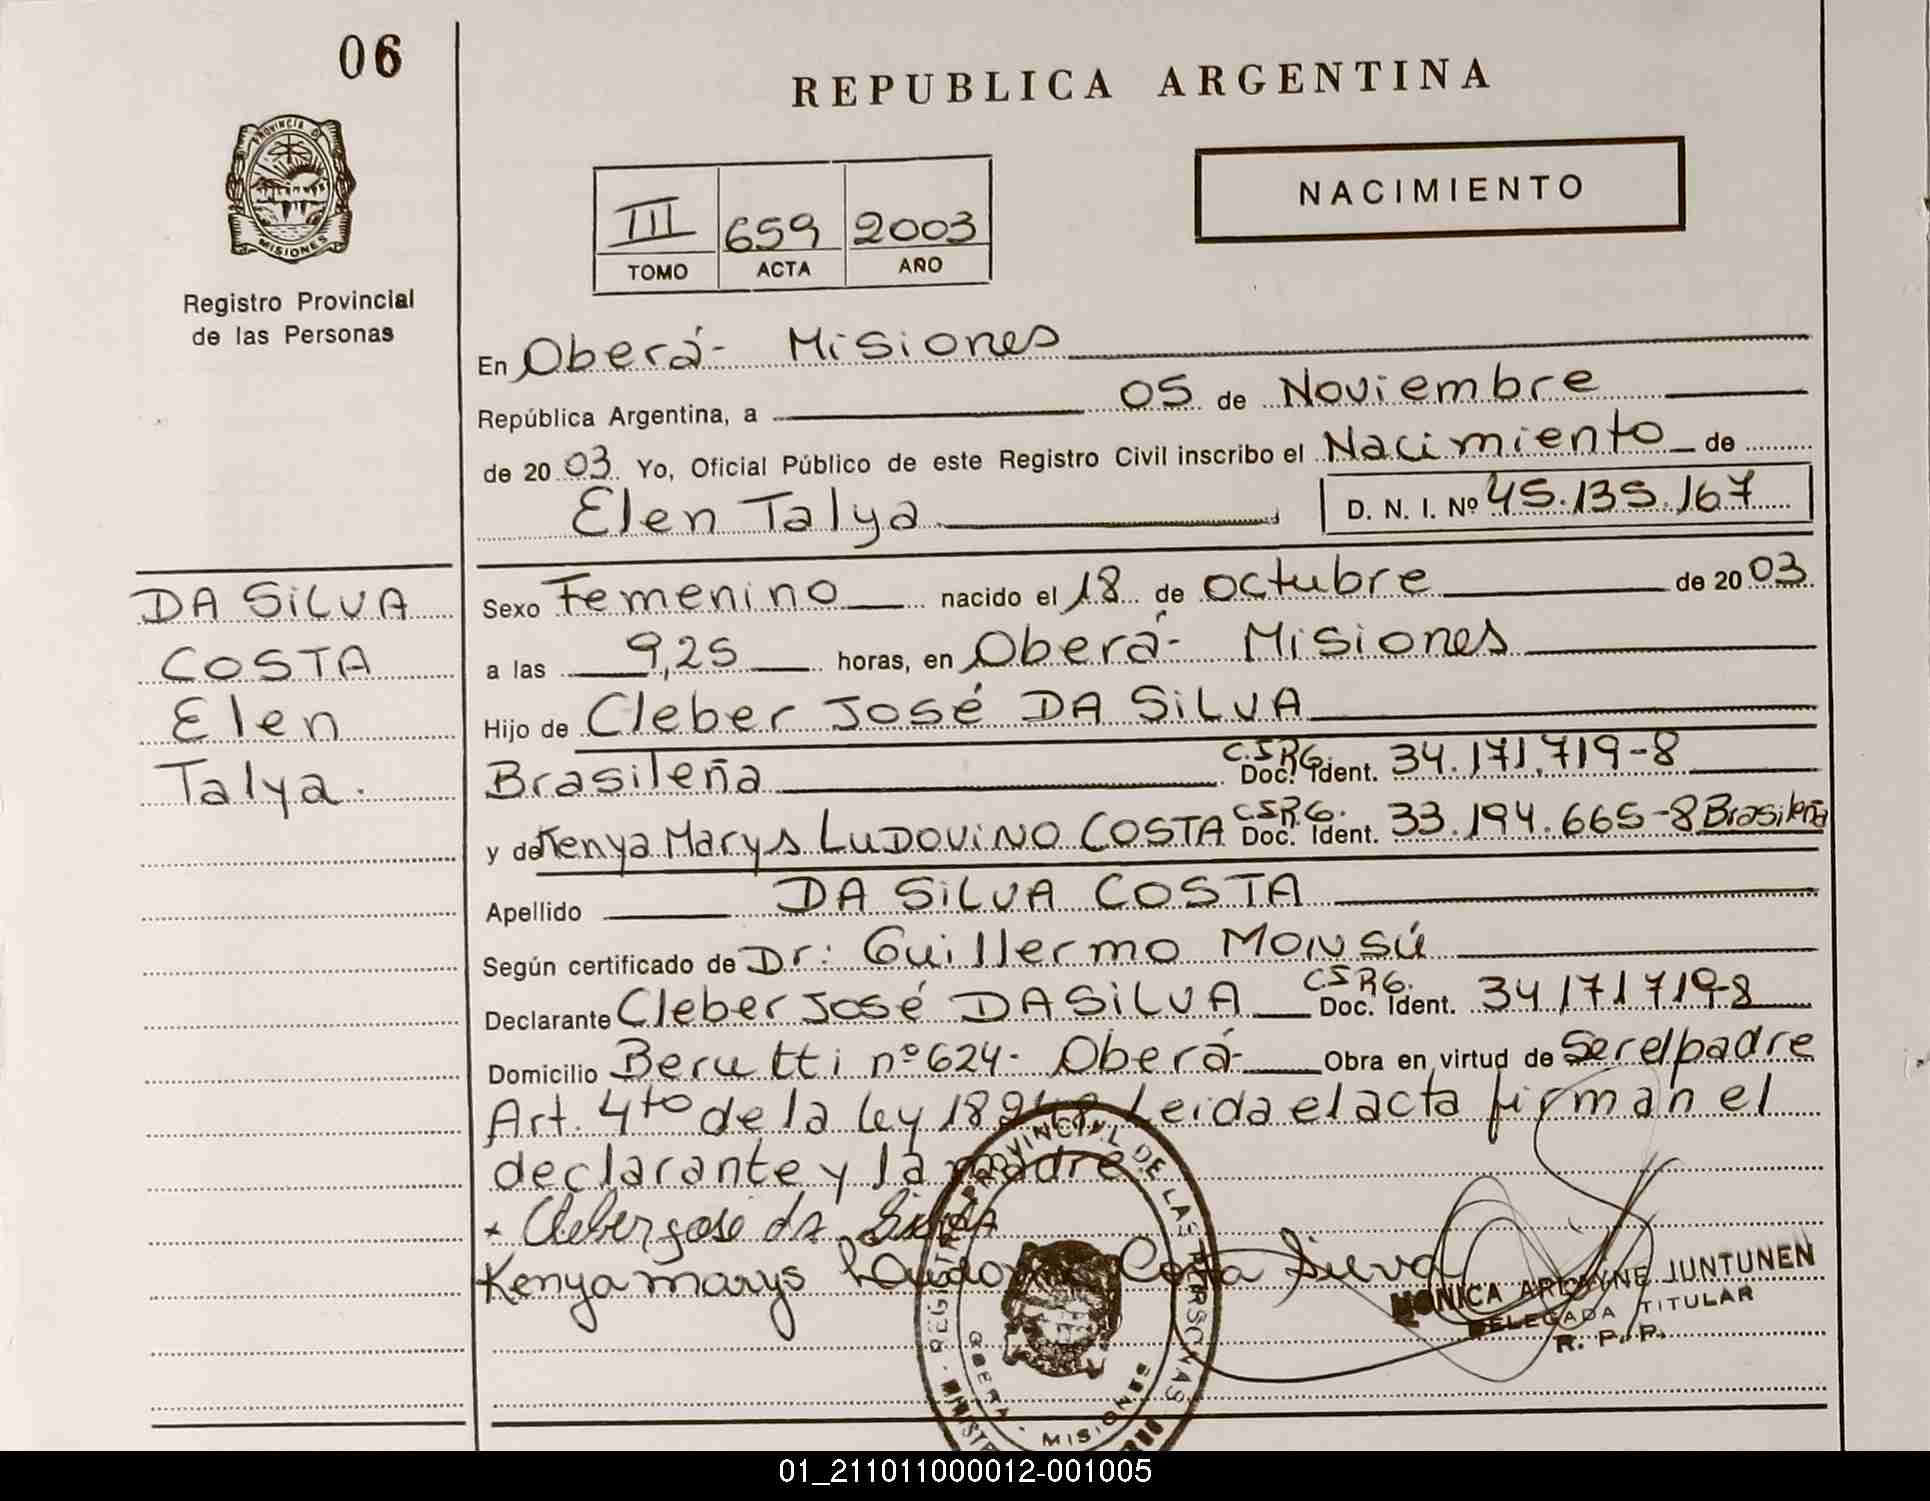 06
REPUBLICA ARGENTINA
PROVINCIA DE
MISIONES
Registro Provincial
de las Personas
III 659 2003
TOMO ACTA AÑO
NACIMIENTO
En Oberá - Misiones
República Argentina, a 05 de Noviembre
de 20 03. Yo, Oficial Público de este Registro Civil inscribo el Nacimiento de
Elen Talya D. N. I. Nº 45.135.167
DA SILVA
COSTA
Elen
Talya.
Sexo Femenino nacido el 18 de octubre de 20 03
a las 9,25 horas, en Oberá - Misiones
Hijo de Cleber José DA SILVA
Brasileña C.I.R.G. Doc. Ident. 34.171.719-8
y de Kenya Marys LUDOVINO COSTA C.I.R.G. Doc. Ident. 33.194.665-8 Brasileña
Apellido DA SILVA COSTA
Según certificado de Dr: Guillermo MONSÚ
Declarante Cleber José DA SILVA C.I.R.G. Doc. Ident. 34171719-8
Domicilio Berutti nº 624- Oberá- Obra en virtud de Ser el padre
Art. 4to de la Ley Leida el acta firman el
declarante y la madre
Cleber jose da Silva
Kenya marys Costa
MONICA JUNTUNEN
DELEGADA TITULAR
R. P. P.
REGISTRO PROVINCIAL DE LAS PERSONAS
OBERA - MISIONES
01_211011000012-001005